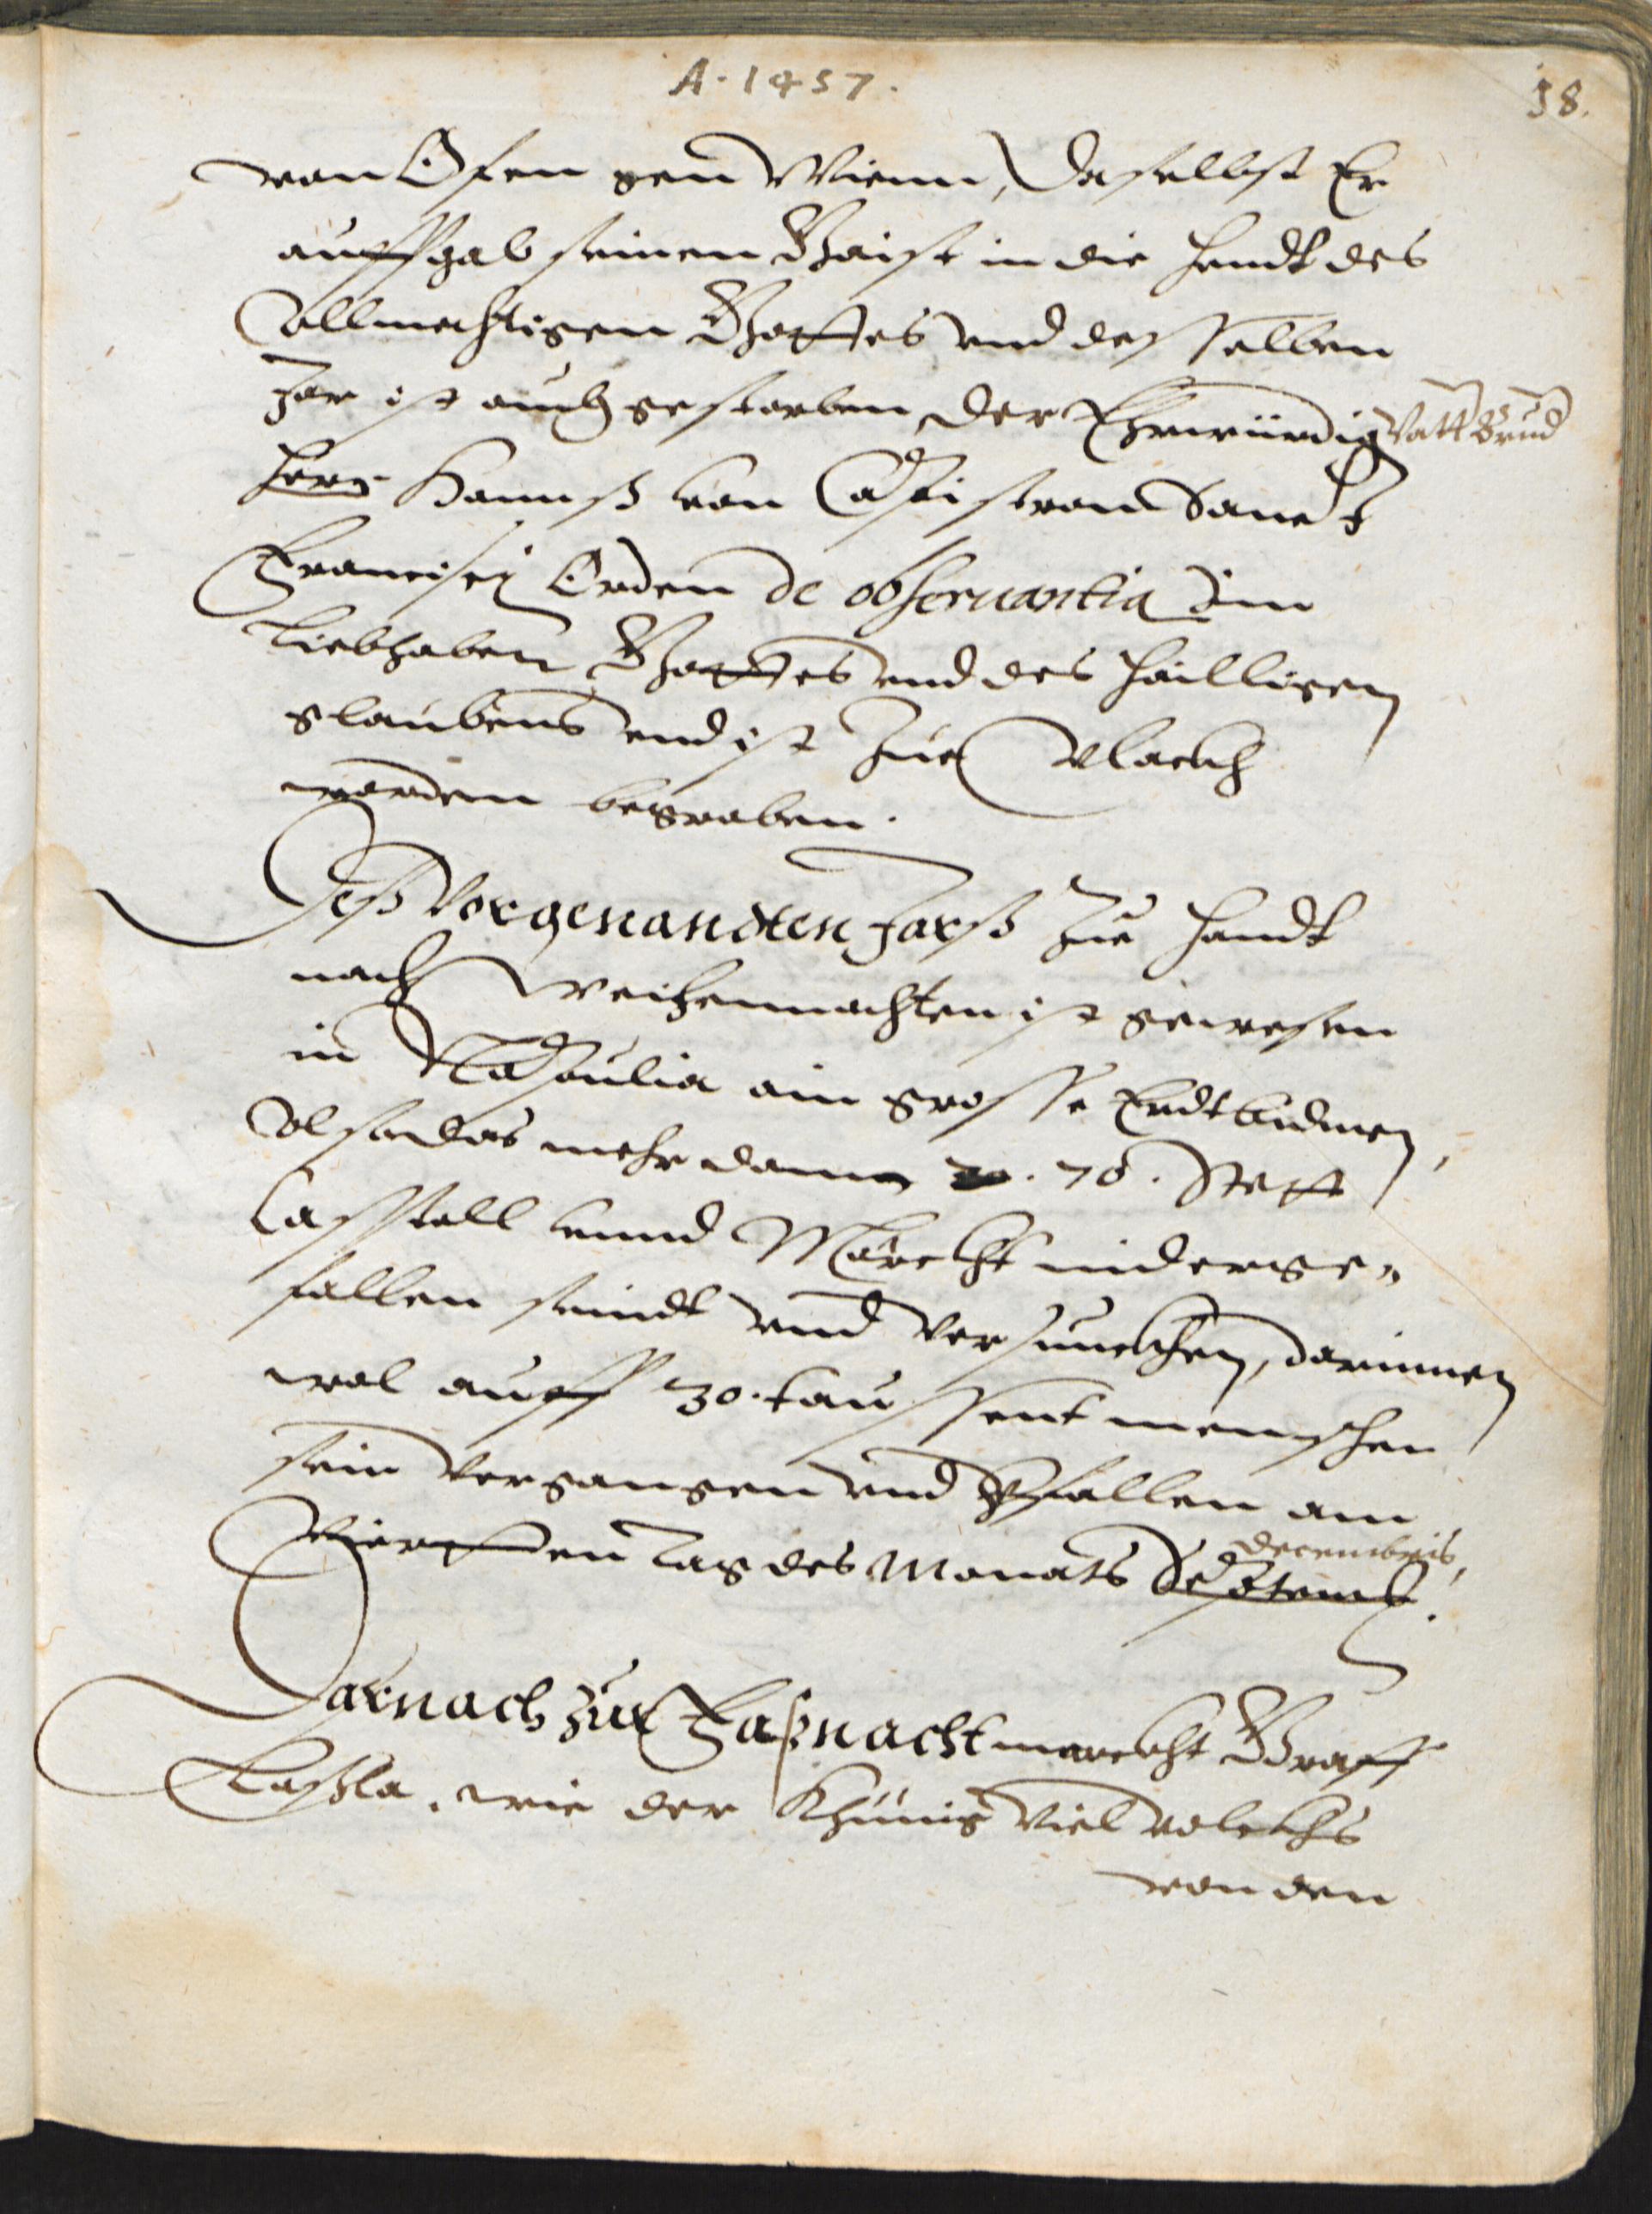 A. 1457.
58.
von Ofen gen Wienn, daselbst Er
auffgab seinen Gaist in die Handt des
Allmechtigen Gottes vnd desselben
Jar ist auch gestorben der Ehrwürdig Vatt Brud
Herr Hannß von Capistran Sanct
Francisci Orden de obseruantia Ein
Liebhaber Gottes vnd des hailligen
glaubens vnd ist zue Vlackh
worden begraben.
Deß Vorgenandten Jarß zue Handt
nach Weihennachten ist gewesen
in Apulia ain grosse Erdtbidmen,
Also das mehr dann 70. Stett
Casstell vnnd Märckht niderge-
fallen seindt vnd versunckhen, darinnen
wol auff 30. taussent menschen
sein vergangen vnd gefallen am
Vierten tag des Monats Septemb.
decembris,
Darnach zur Faßnacht marckht Graff
Laßla, wie der Khünig viel volckhs
von den